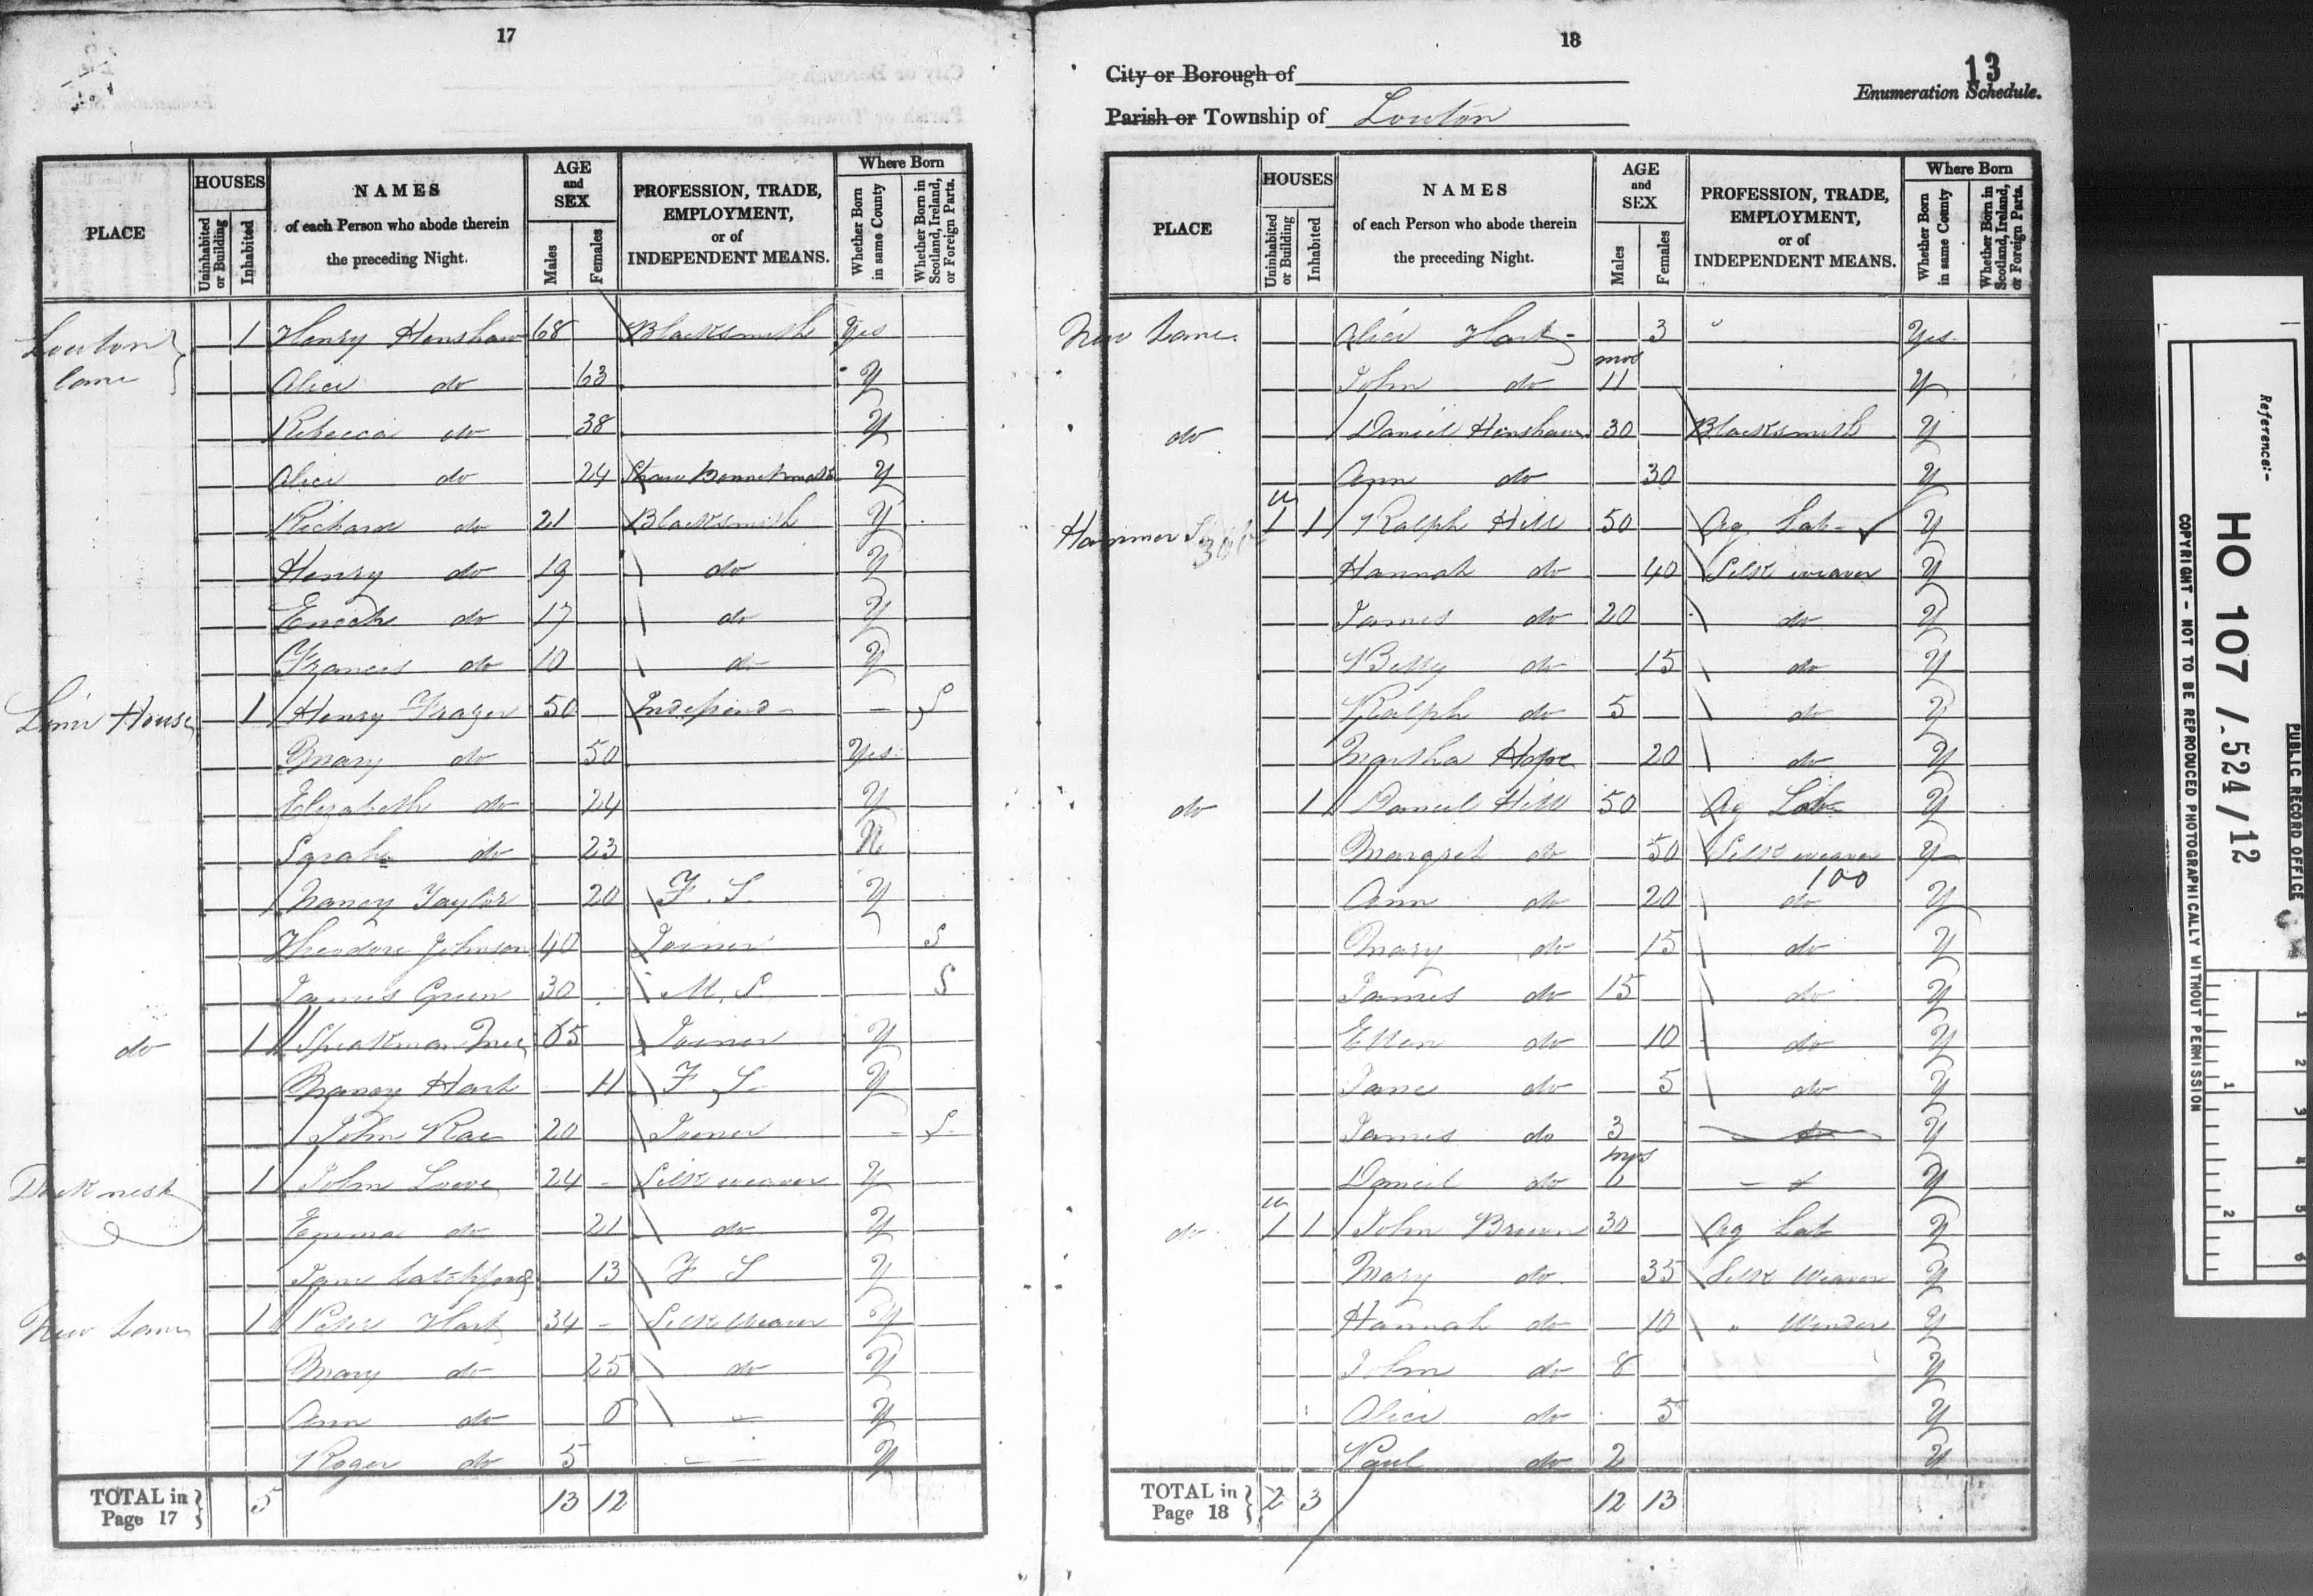 17
PLACE
HOUSES
Uninhabited or Building
Inhabited
NAMES
of each Person who abode therein
the preceding Night.
AGE
and
SEX
Males
Females
PROFESSION, TRADE,
EMPLOYMENT,
or of
INDEPENDENT MEANS.
Where Born
Whether Born in same County
Whether Born in Scotland, Ireland, or Foreign Parts.
Lowton lane 1 Henry Henshaw 68 Blacksmith Yes
Alice do 63 Y
Rebecca do 38 Y
Alice do 24 Straw Bonnet Y
Richard do 21 Blacksmith Y
Henry do 19 do Y
Enoch do 17 do Y
Francis do 10 do Y
House 1 Henry Frazer 50 Independ - S
Mary do 50 Yes
Elizabeth do 24 Y
Sarah do 23 N
Nancy Taylor 20 F. S. Y
Theodore Johnson 40 Joiner S
James Green 30 M. S. S
do 1 Speakman 65 Joiner Y
Nancy Hart 11 F. S. Y
John Rae 20 Joiner - S
1 John Lowe 24 - Silk weaver Y
Emma do 21 do Y
Jane 13 F S Y
New Lane 1 Peter Hart 34 - Silk Weaver Y
Mary do 25 do Y
Ann do Y
Roger do 5 - - Y
TOTAL in Page 17 } 5 13 12
18
City or Borough of
Parish or Township of Lowton
13
Enumeration Schedule.
PLACE
HOUSES
Uninhabited or Building
Inhabited
NAMES
of each Person who abode therein
the preceding Night.
AGE
and
SEX
Males
Females
PROFESSION, TRADE,
EMPLOYMENT,
or of
INDEPENDENT MEANS.
Where Born
Whether Born in same County
Whether Born in Scotland, Ireland, or Foreign Parts.
New Lane Alice Hart 3 " Yes
mos
John do 11 Y
do Daniel Henshaw 30 Blacksmith Y
Ann do 30 Y
u
Hammer 1 1 Ralph Hill 50 Ag. Lab Y
Hannah do 40 Silk weaver Y
James do 20 do Y
Betty do 15 do Y
Ralph do 5 do Y
Martha Hope 20 do Y
do 1 Daniel Hill 50 Ag Lab Y
Margret do 50 Silk weaver Y
100
Ann do 20 do Y
Mary do 15 do Y
James do 15 do Y
Ellen do 10 do Y
Jane do 5 do Y
James do 3 do Y
Daniel do Y
u
do 1 1 John Brown 30 Ag Lab Y
Mary do 35 Silk Weaver Y
Hannah do 10 " Winder Y
John do 8 Y
Alice do 5 Y
Paul do 2 Y
TOTAL in Page 18 } 2 3 12 13
PUBLIC RECORD OFFICE
Reference:-
HO 107 / 524 / 12
COPYRIGHT - NOT TO BE REPRODUCED PHOTOGRAPHICALLY WITHOUT PERMISSION
1
2
3
4
5
6
1
2